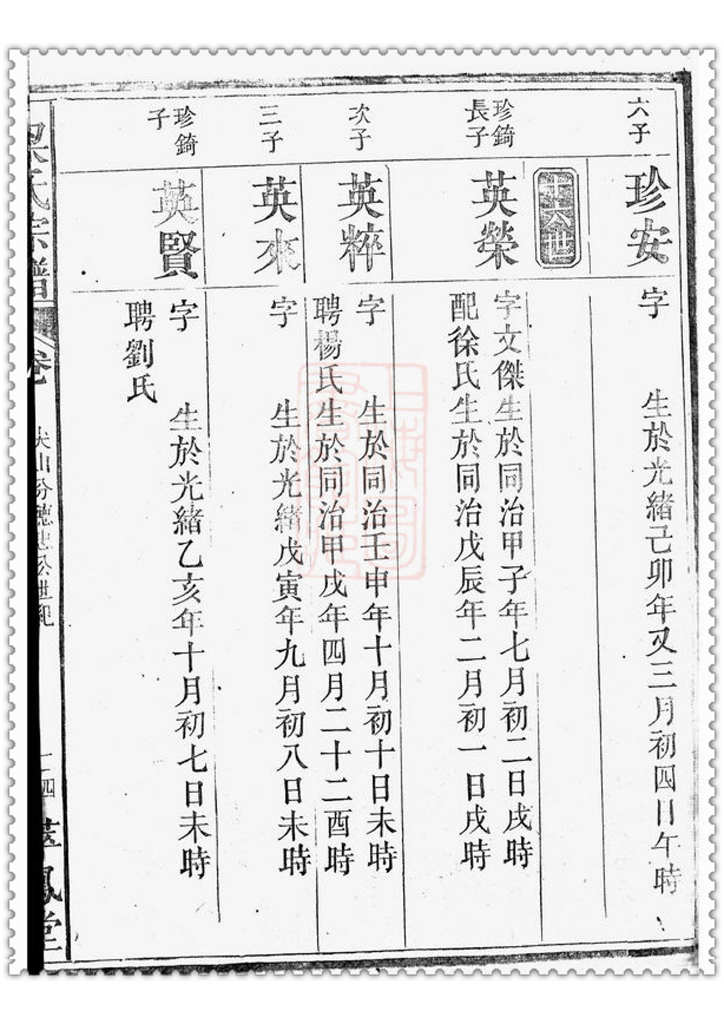 六子
珍安
字 生於光緒己卯年又三月初四日午時
十六世
珍錡
長子
英榮
字文傑生於同治甲子年七月初二日戌時
配徐氏生於同治戊辰年二月初一日戌時
次子
英粹
字 生於同治壬申年十月初十日未時
聘楊氏生於同治甲戌年四月二十二酉時
三子
英來
字 生於光緒戊寅年九月初八日未時
珍錡
子
英賢
字 生於光緒乙亥年十月初七日未時
聘劉氏
氏宗譜 卷
鳳堂